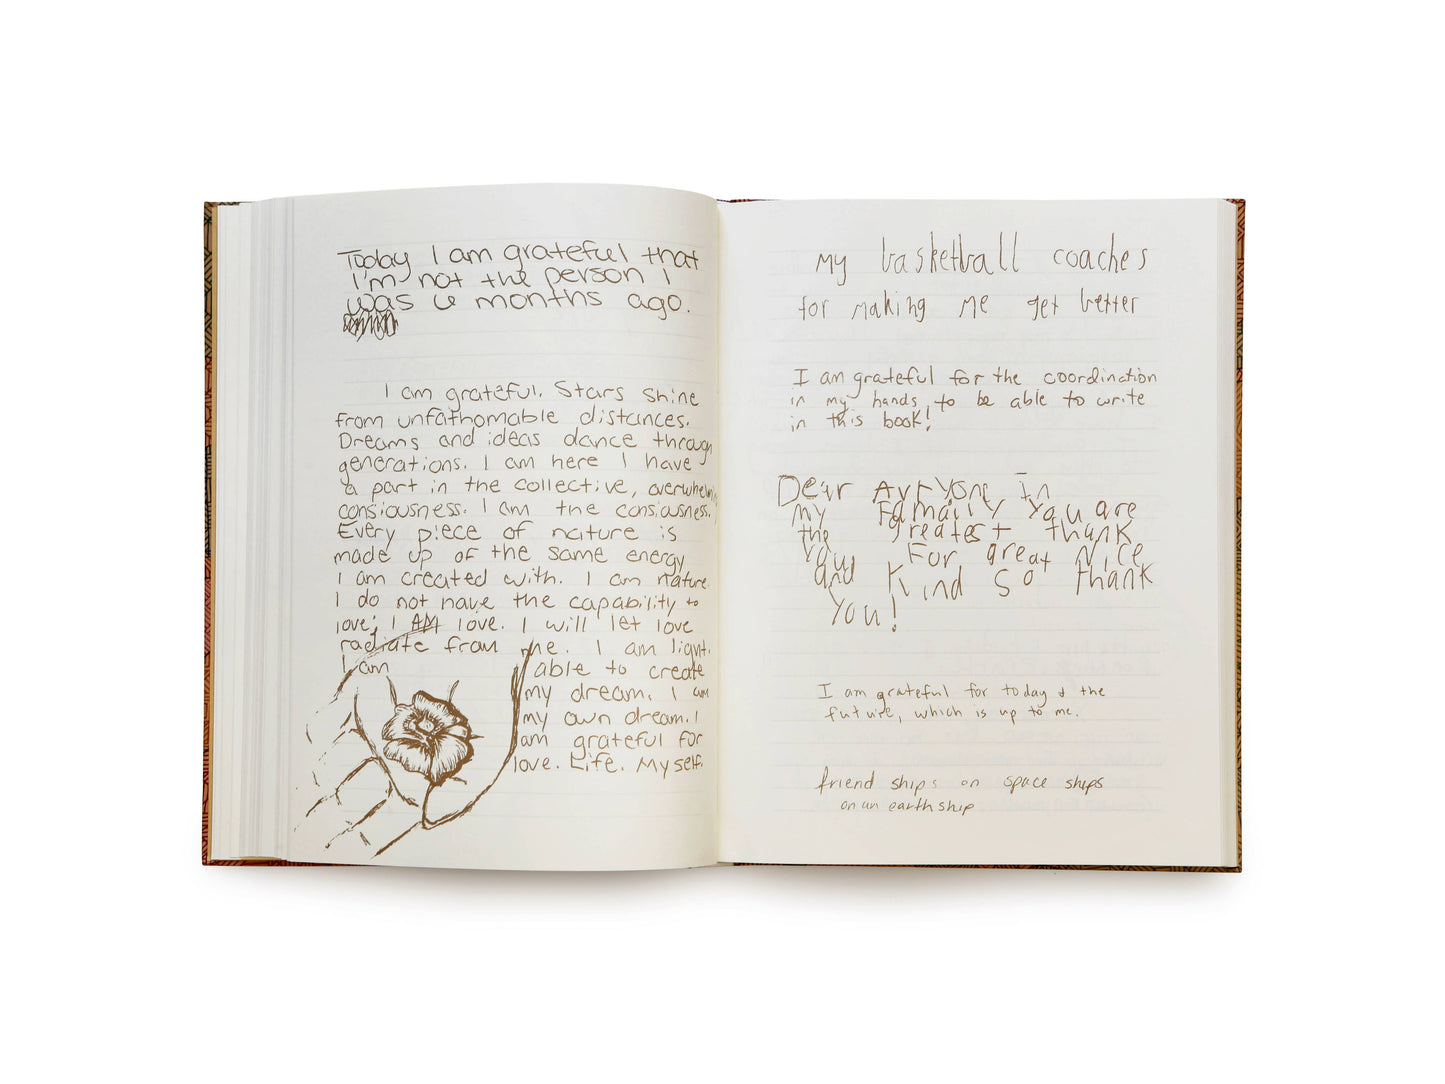 Today I am grateful that
I'm not the person I
was 6 months ago.
I am grateful. Stars shine
from unfathomable distances.
Dreams and ideas dance through
generations. I am here I have
a part in the collective, overwhelming
consiousness. I am the consiousness.
Every piece of nature is
made up of the same energy
I am created with. I am nature.
I do not have the capability to
love; I AM love. I will let love
radiate from me. I am light.
I am able to create
my dream. I am
my own dream. I
am grateful for
love. Life. Myself.
my basketball coaches
for making me get better
I am grateful for the coordination
in my hands to be able to write
in this book!
Dear Avryone In
my Famaily you are
the greatest thank
you For great Nice
and Kind So thank
you!
I am grateful for today & the
future, which is up to me.
friend ships on space ships
on an earth ship